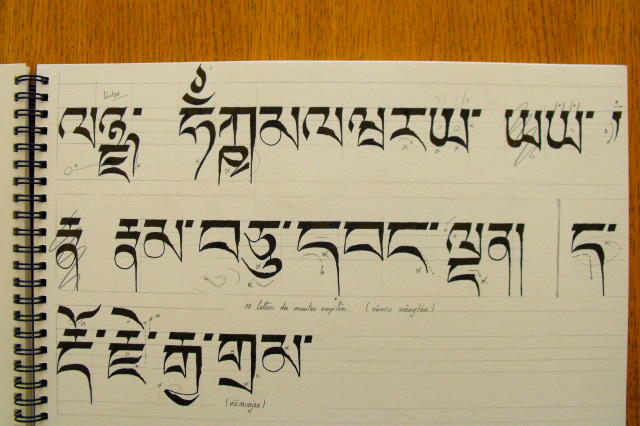 ལཉྫ་ ཧྃཀྵམལཝརཡ་
རྣམ་བཅུ་དབང་ལྡན། ད་
10 lettres du mantra empilées. (nāmcu wāngdän)
རྡོ་རྗེ་རྒྱ་གྲམ་
(viśvavajra)